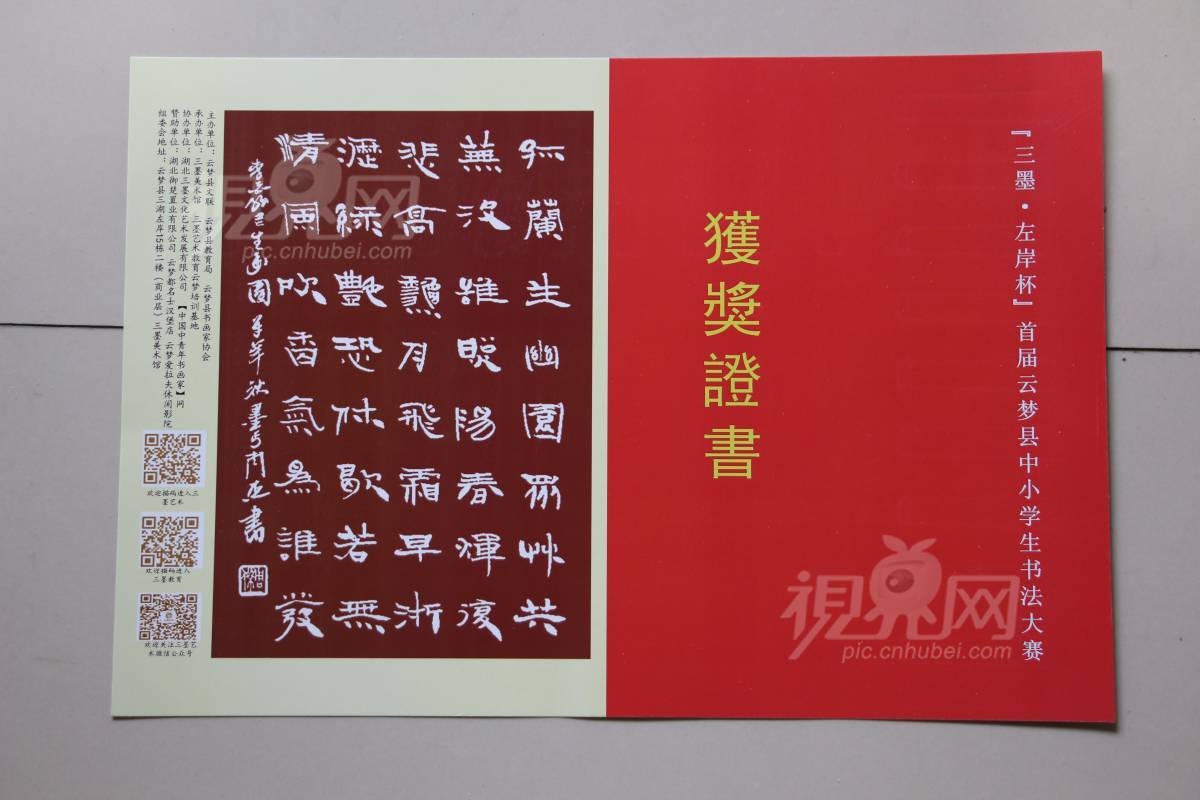 『三墨·左岸杯』首届云梦县中小学生书法大赛
獲獎證書
孤蘭生幽園眾艸共
蕪沒雖照陽春暉復
悲高龝月飛霜早淅
瀝綠豔恐休歇若無
清風吹香氣為誰發
生 園 羊年秋墨 書
主办单位：云梦县文联 云梦县教育局 云梦县书画家协会
承办单位：三墨美术馆 三墨艺术教育云梦培训基地
协办单位：湖北三墨文化艺术发展有限公司 【中国中青年书画家】网
赞助单位：湖北御楚置业有限公司 云梦都名士汉堡店 云梦爱拉夫休闲影院
组委会地址：云梦县三湖左岸15栋二楼（商业层）三墨美术馆
欢迎描码进入三
墨艺术
欢迎描码进入
三墨教育
欢迎关注三墨艺
术微信公众号
視界网
pic.cnhubei.com
視界网
pic.cnhubei.com